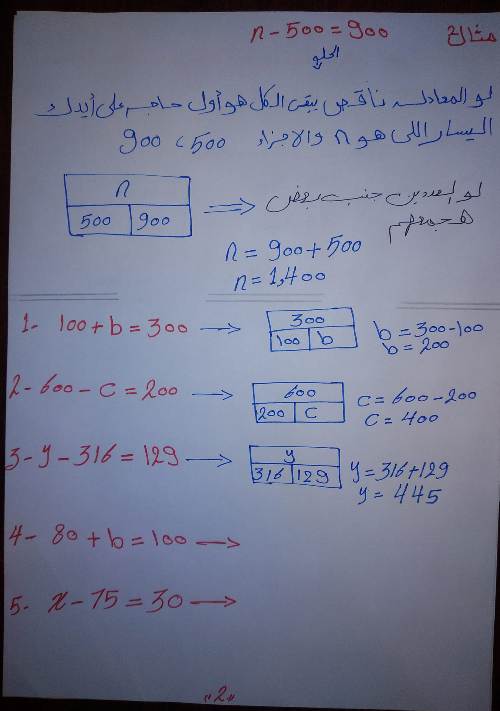 مثال n - 500 = 900
الحل
لو المعادلة ناقص يبقى الكل هو أول حاجه على أيدك
اليسار اللى هو n والاجزاء 500 ، 900
n
500 900
لو العددين جنب بعض
هجمعهم
n = 900 + 500
n = 1,400
1- 100 + b = 300
300
100 b
b = 300 - 100
b = 200
2- 600 - c = 200
600
200 c
c = 600 - 200
c = 400
3- y - 316 = 129
y
316 129
y = 316 + 129
y = 445
4- 80 + b = 100
5- x - 75 = 30
"2"